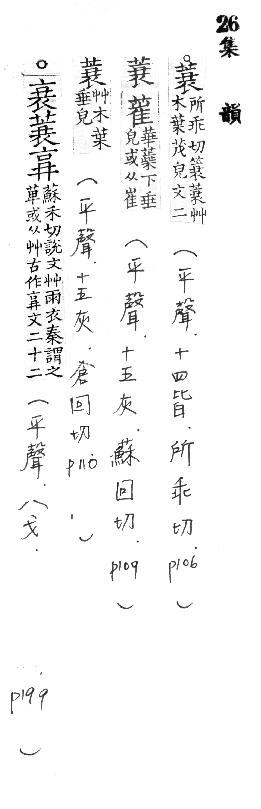 26 集韻
蓑 所乖切簑蓑艸木葉茂皃文二 (平聲.十四皆.所乖切.p106)
蓑 䔴 華蘂下垂皃或从崔 (平聲.十五灰.蘇回切.p109)
蓑 艸木葉垂皃 (平聲.十五灰.倉回切.p110)
衰蓑𠱢 蘇禾切說文艸雨衣秦謂之萆或从艸古作𠱢文二十二 (平聲.八戈. p199)